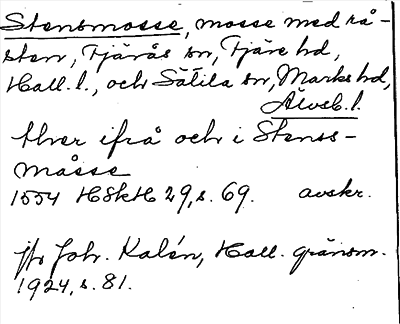 Stensmosse, mosse med rå-
sten, Fjärås sn, Fjäre hd,
Hall. l., och Sätila sn, Marks hd,
Älvsb. l.
thver ifrå och i Stenss-
måsse
1554 HSkH 29, s. 69. avskr.
Jfr Joh. Kalén, Hall. gränsm.
1924, s. 81.